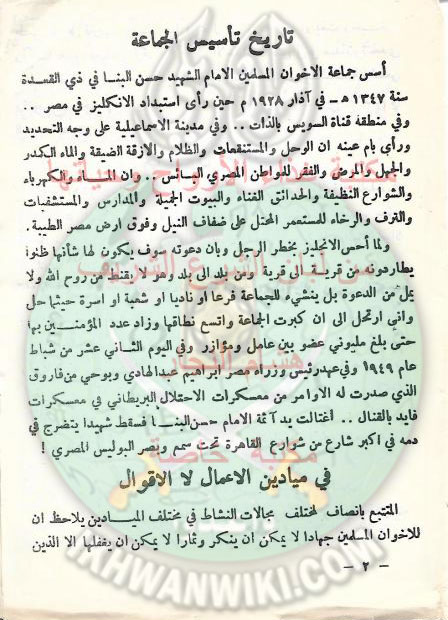 تاريخ تأسيس الجماعة
أسس جماعة الاخوان المسلمين الامام الشهيد حسن البنا في ذي القعدة
سنة ١٣٤٧ هـ - في آذار ١٩٢٨ م حين رأى استبداد الانكليز في مصر ..
وفي منطقة قناة السويس بالذات .. وفي مدينة الاسماعيلية على وجه التحديد
ورأى بأم عينه ان الوحل والمستنقعات والظلام والازقة الضيقة والماء الكدر
والجهل والمرض والفقر للمواطن المصري البائس .. وان الماء والكهرباء
والشوارع النظيفة والحدائق الغناء والبيوت الجميلة والمدارس والمستشفيات
والترف والرخاء للمستعمر المحتل على ضفاف النيل وفوق ارض مصر الطيبة.
ولما أحس الانجليز بخطر الرجل وبان دعوته سوف يكون لها شأنها ظلوا
يطاردونه من قرية الى قرية ومن بلد الى بلد وهو لا يقنط من روح الله ولا
يمل من الدعوة بل ينشيء للجماعة فرعا او ناديا او شعبة او اسرة حيثما حل
وانى ارتحل الى ان كبرت الجماعة واتسع نطاقها وزاد عدد المؤمنين بها
حتى بلغ مليوني عضو بين عامل ومؤازر وفي اليوم الثاني عشر من شباط
عام ١٩٤٩ وفي عهد رئيس وزراء مصر ابراهيم عبد الهادي وبوحي من فاروق
الذي صدرت له الاوامر من معسكرات الاحتلال البريطاني في معسكرات
فايد بالقنال .. اغتالت يد آثمة الامام حسن البنا فسقط شهيدا يتضرج في
دمه في اكبر شارع من شوارع القاهرة تحت سمع وبصر البوليس المصري !
في ميادين الاعمال لا الاقوال
المتتبع بانصاف لمختلف مجالات النشاط في مختلف الميادين يلاحظ ان
للاخوان المسلمين جهادا لا يمكن أن ينكر وثمارا لا يمكن ان يغفلها الا الذين
- ٢ -
IKHWANWIKI.COM